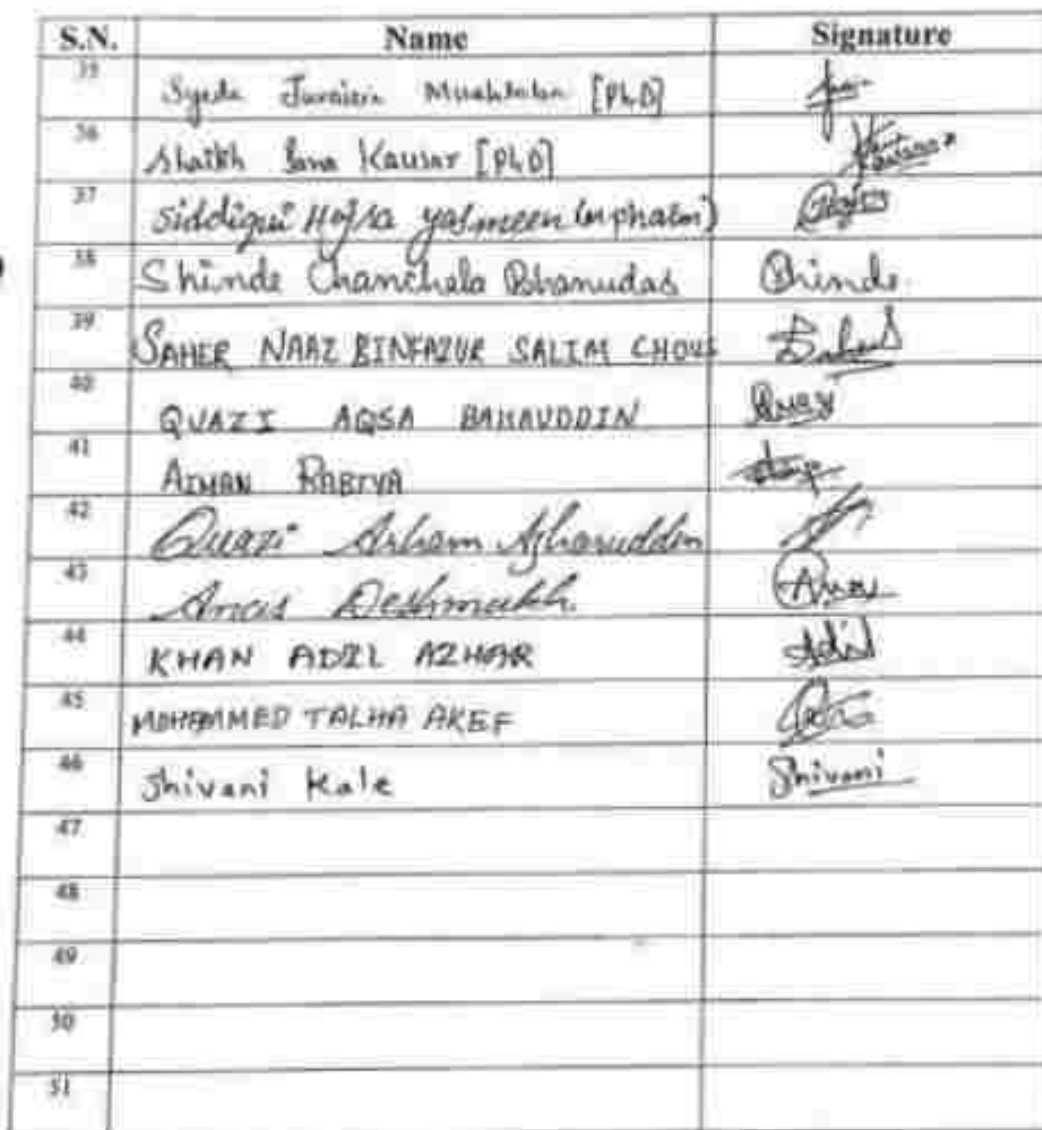 S.N. Name Signature
35 Syeda [PhD]
36 Shaikh Sana Kausar [PhD]
37 Siddiqui Hafsa yasmeen (m pharm)
38 Shinde Chanchala Bhanudas Shinde
39 SAHER NAAZ SALIM Saher
40 QUAZI AQSA BAHAUDDIN Quazi
41 AIMAN RABIYA
42 Quazi Arham Azharuddin
43 Anas Deshmukh. Anas
44 KHAN ADIL AZHAR Adil
45 MOHAMMED TALHA AKEF
46 Shivani Kale Shivani
47
48
49
50
51